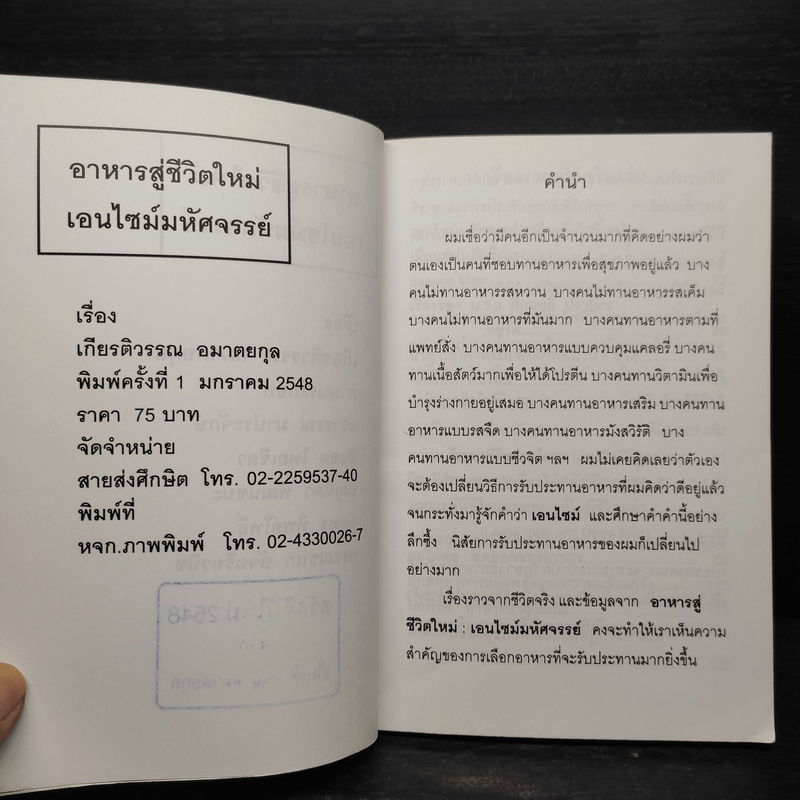 อาหารสู่ชีวิตใหม่
เอนไซม์มหัศจรรย์
เรื่อง
เกียรติวรรณ อมาตยกุล
พิมพ์ครั้งที่ 1 มกราคม 2548
ราคา 75 บาท
จัดจำหน่าย
สายส่งศึกษิต โทร. 02-2259537-40
พิมพ์ที่
หจก.ภาพพิมพ์ โทร. 02-4330026-7
คำนำ
ผมเชื่อว่ามีคนอีกเป็นจำนวนมากที่คิดอย่างผมว่า
ตนเองเป็นคนที่ชอบทานอาหารเพื่อสุขภาพอยู่แล้ว บาง
คนไม่ทานอาหารรสหวาน บางคนไม่ทานอาหารรสเค็ม
บางคนไม่ทานอาหารที่มันมาก บางคนทานอาหารตามที่
แพทย์สั่ง บางคนทานอาหารแบบควบคุมแคลอรี่ บางคน
ทานเนื้อสัตว์มากเพื่อให้ได้โปรตีน บางคนทานวิตามินเพื่อ
บำรุงร่างกายอยู่เสมอ บางคนทานอาหารเสริม บางคนทาน
อาหารแบบรสจืด บางคนทานอาหารมังสวิรัติ บาง
คนทานอาหารแบบชีวจิต ฯลฯ ผมไม่เคยคิดเลยว่าตัวเอง
จะต้องเปลี่ยนวิธีการรับประทานอาหารที่ผมคิดว่าดีอยู่แล้ว
จนกระทั่งมารู้จักคำว่า เอนไซม์ และศึกษาคำคำนี้อย่าง
ลึกซึ้ง นิสัยการรับประทานอาหารของผมก็เปลี่ยนไป
อย่างมาก
เรื่องราวจากชีวิตจริง และข้อมูลจาก อาหารสู่
ชีวิตใหม่ : เอนไซม์มหัศจรรย์ คงจะทำให้เราเห็นความ
สำคัญของการเลือกอาหารที่จะรับประทานมากยิ่งขึ้น